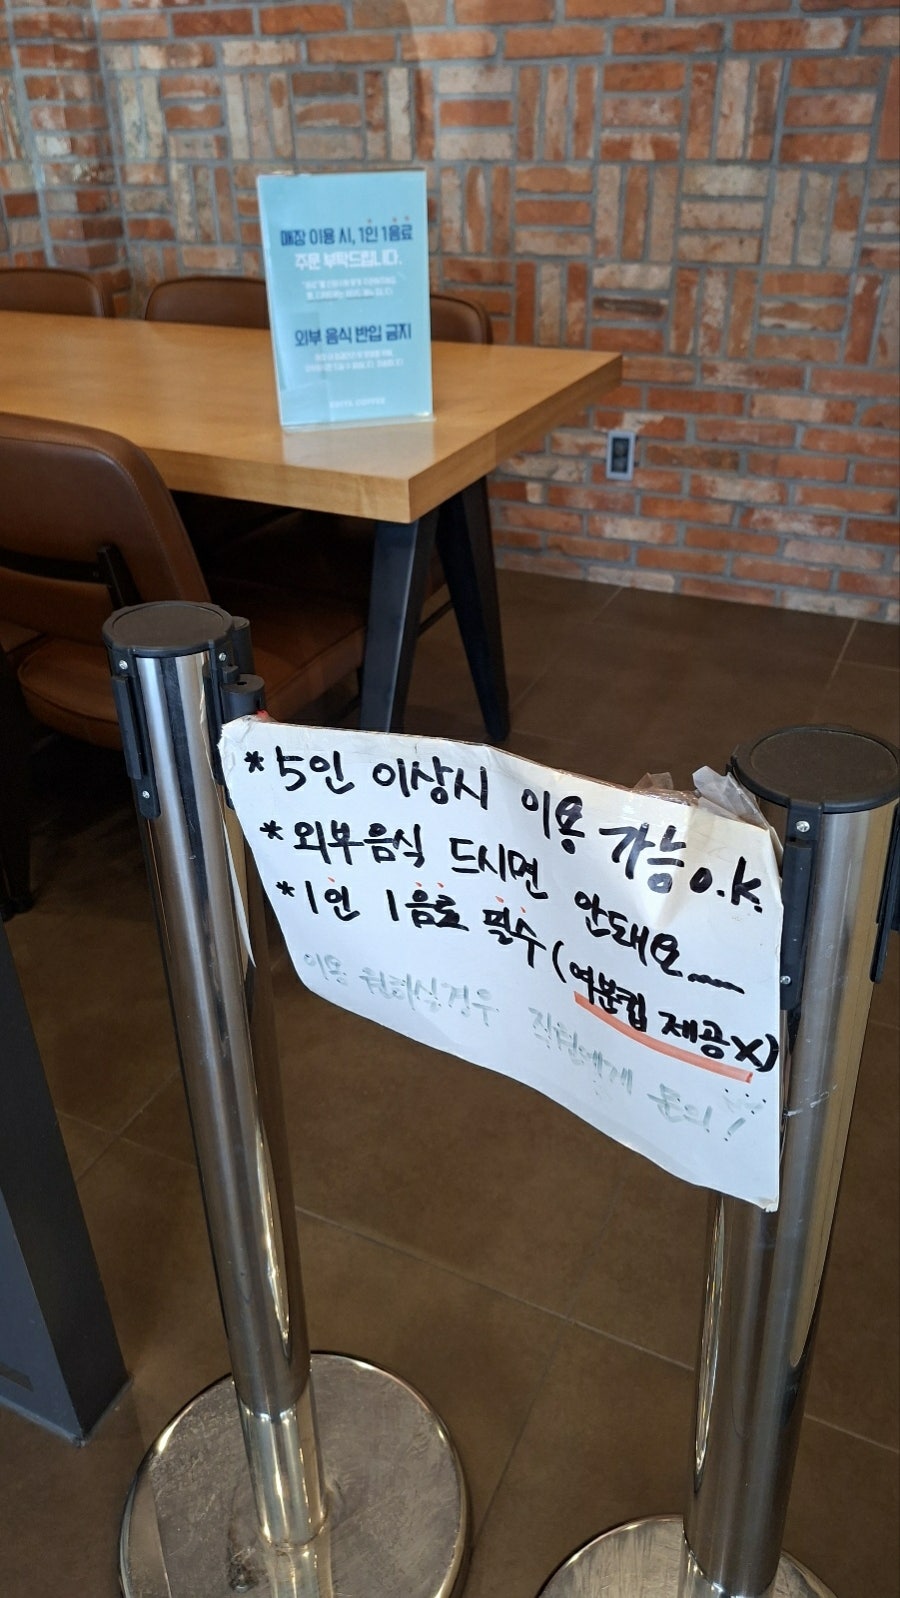 매장 이용 시, 1인 1음료
주문 부탁드립니다.
외부 음식 반입 금지
COFFEE
*5인 이상시 이용 가능 o.k.
*외부음식 드시면 안돼요
*1인 1음료 필수 (여분컵 제공X)
이용 원하실경우 직원에게 문의!